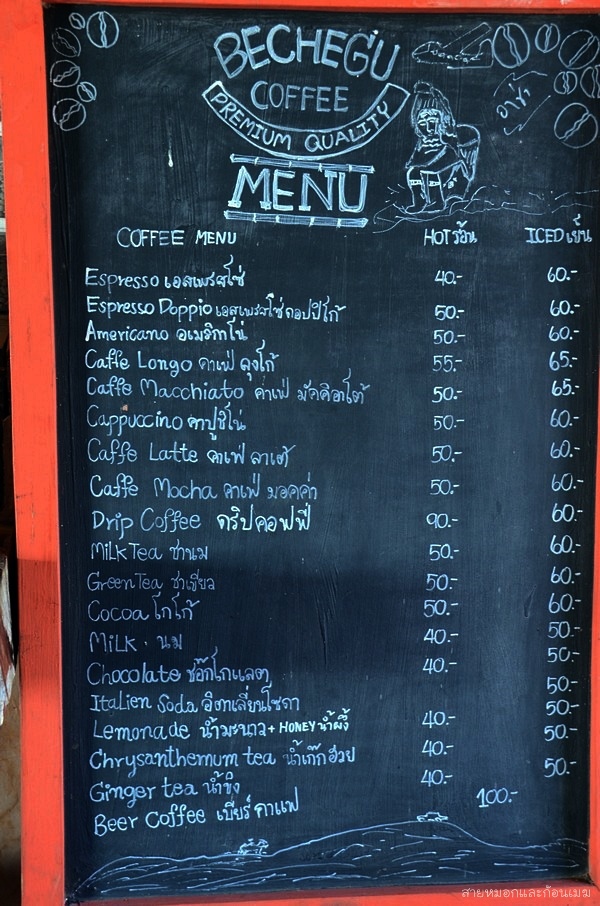 BECHEGU
COFFEE
PREMIUM QUALITY
อาข่า
MENU
COFFEE MENU HOT ร้อน ICED เย็น
Espresso เอสเพรสโซ่ 40.- 60.-
Espresso Doppio เอสเพรสโซ่ดอปปิโก้ 50.- 60.-
Americano อเมริกาโน่ 50.- 60.-
Caffe Longo คาเฟ่ ลุงโก้ 55.- 65.-
Caffe Macchiato คาเฟ่ มัคคิอาโต้ 50.- 65.-
Cappuccino คาปูชิโน่ 50.- 60.-
Caffe Latte คาเฟ่ ลาเต้ 50.- 60.-
Caffe Mocha คาเฟ่ มอคค่า 50.- 60.-
Drip Coffee ดริปคอฟฟี่ 90.- 60.-
Milk Tea ชานม 50.- 60.-
Green Tea ชาเขียว 50.- 60.-
Cocoa โกโก้ 50.- 60.-
Milk . นม 40.- 50.-
Chocolate ช๊อกโกแลต 40.- 50.-
Italien Soda อิตาเลี่ยนโซดา 50.-
Lemonade น้ำมะนาว + HONEY น้ำผึ้ง 40.- 50.-
Chrysanthemum tea น้ำเก๊กฮวย 40.- 50.-
Ginger tea น้ำขิง 40.- 50.-
Beer Coffee เบียร์ กาแฟ 100.-
สายหมอกและก้อนเมฆ